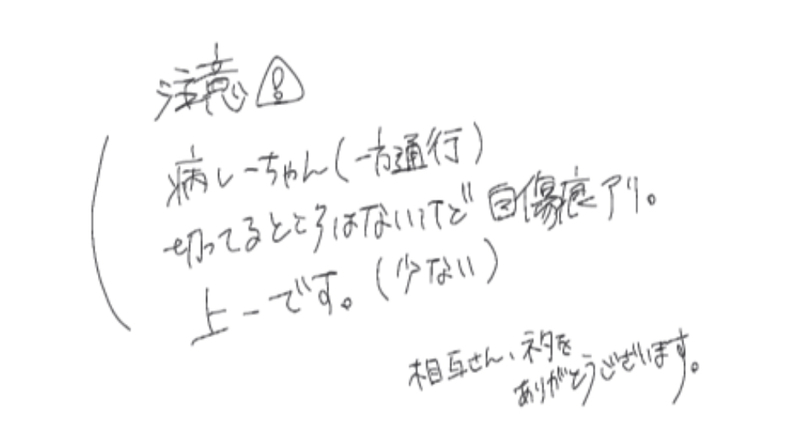 注意⚠
病しーちゃん(一方通行)
切ってるところはないけど自傷痕アリ。
上一です。(少ない)
相互さん、ネタを
ありがとうございます。